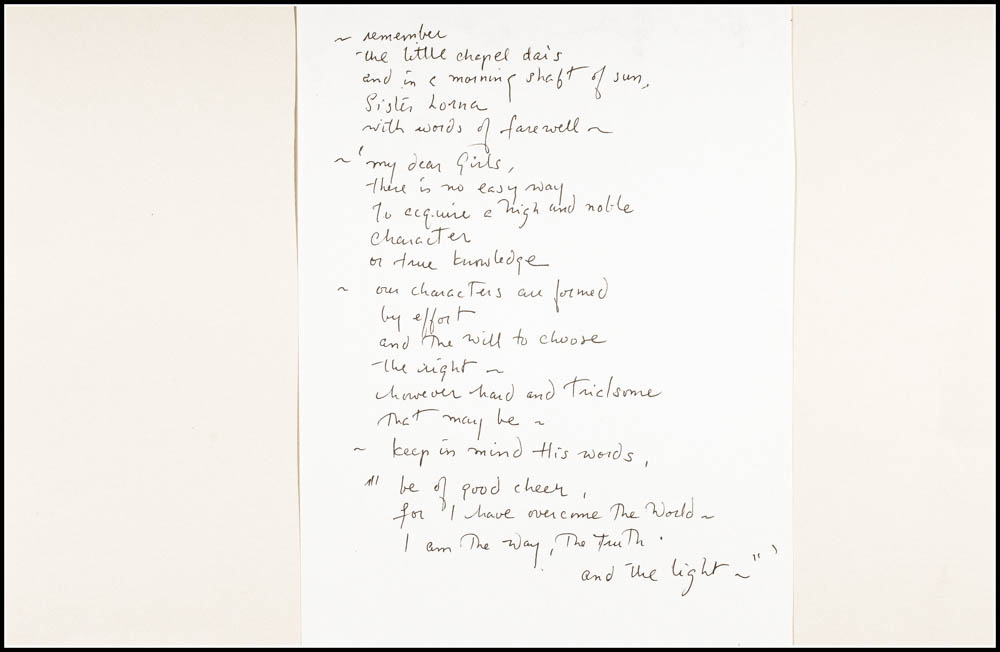 ~ remember
the little chapel dais
and in a morning shaft of sun,
Sister Lorna
with words of farewell ~
~ 'my dear Girls,
there is no easy way
To acquire a high and noble
character
or true knowledge
~ our characters are formed
by effort
and the will to choose
the right ~
however hard and
that may be ~
~ keep in mind His words,
"' be of good cheer,
for I have overcome The World ~
I am The way, The truth.
and the light ~" '